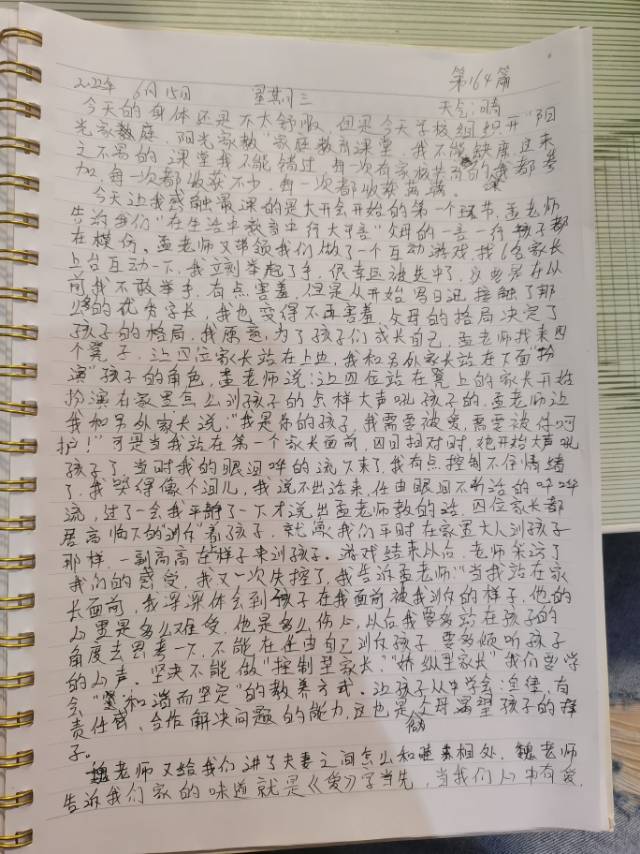 第164篇
2022年 6月15日 星期三 天气:晴
今天的身体还是不太舒服,但是今天学校组织开"阳
光家教庭,阳光家教"家庭教育课堂,我不能缺席这来
之不易的课堂我不能错过,每一次有家校共育的我都参
加,每一次都收获不少,每一次都收获满满。
今天让我感触最深的是大开会开始的第一个环节,孟老师
告诉我们"在生活中教育中行大于言"父母的一言一行孩子都
在模仿。孟老师又带领我们做了一个互动游戏,找6名家长
上台互动一下,我立刻举起了手,很幸运被选中了,要是放在从
前我不敢举手,有点害羞,但是从开始写日记,接触了那
么多的优秀家长,我也变得不再害羞,父母的格局决定了
孩子的格局,我愿意,为了孩子们成长自己,孟老师找来四
个凳子,让四位家长站在上边,我和另外家长站在下面扮
演"孩子的角色,孟老师说:让四位站在凳上的家长开始
扮演在家里怎么训孩子的怎样大声吼孩子的,孟老师让
我和另外家长说:"我是你的孩子,我需要被爱,需要被你呵
护!"可是当我站在第一个家长面前,四目相对时,她开始大声吼
孩子了,当时我的眼泪哗的流下来了,我有点控制不住情绪
了,我哭得像个泪儿,我说不出话来,任由眼泪不听话的哗哗
流,过了一会我平静了一下才说出孟老师教的话,四位家长都
居高临下的"训斥"着孩子,就像我们平时在家里大人训孩子
那样,一副高高在样子来训孩子。游戏结束以后,老师采访了
我们的感受,我又一次失控了,我告诉孟老师:"当我站在家
长面前,我深深体会到孩子在我面前被我训斥的样子,他的
心里是多么难受,他是多么伤心,以后我要多站在孩子的
角度去思考一下,不能在任由自己训斥孩子,要多倾听孩子
的心声。坚决不能做"控制型家长,""娇纵型家长"我们要学
会,"温和而坚定"的教养方式。让孩子从中学会:自律,有
责任感、合作解决问题的能力,这也是父母渴望给孩子的样
子。
魏老师又给我们讲了夫妻之间怎么和睦相处,魏老师
告诉我们家的味道就是《爱》字当先,当我们心中有爱,